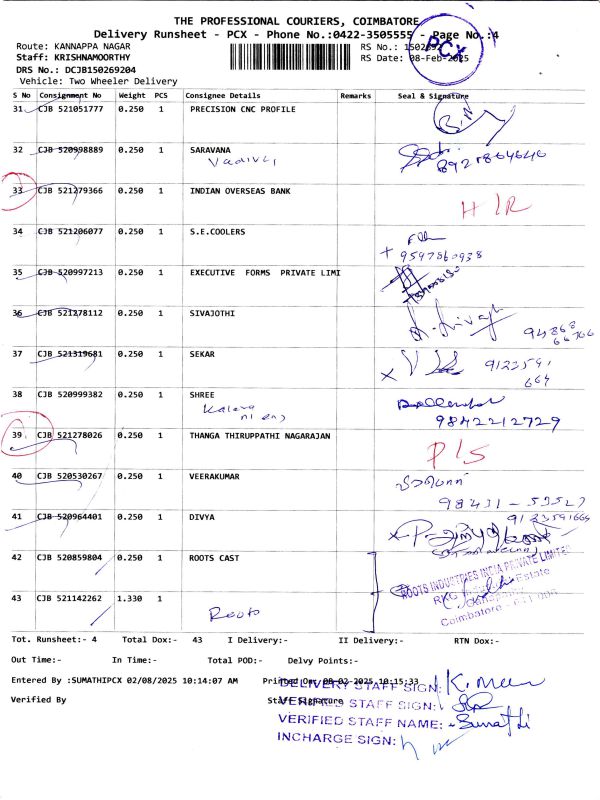 THE PROFESSIONAL COURIERS, COIMBATORE
Delivery Runsheet - PCX - Phone No.:0422-3505555 - Page No.:4
Route: KANNAPPA NAGAR RS No.:
PCX
Staff: KRISHNAMOORTHY RS Date: 08-Feb-2025
DRS No.: DCJB150269204
Vehicle: Two Wheeler Delivery
S No Consignment No Weight PCS Consignee Details Remarks Seal & Signature
31 CJB 521051777 0.250 1 PRECISION CNC PROFILE
32 CJB 520998889 0.250 1 SARAVANA
Vadivel 8921864646
33 CJB 521279366 0.250 1 INDIAN OVERSEAS BANK
34 CJB 521206077 0.250 1 S.E.COOLERS
9597860938
35 CJB 520997213 0.250 1 EXECUTIVE FORMS PRIVATE LIMI
36 CJB 521278112 0.250 1 SIVAJOTHI
37 CJB 521319681 0.250 1 SEKAR
9123591
664
38 CJB 520999382 0.250 1 SHREE
9842212729
39 CJB 521278026 0.250 1 THANGA THIRUPPATHI NAGARAJAN
40 CJB 520530267 0.250 1 VEERAKUMAR
98431 - 53527
41 CJB 520964401 0.250 1 DIVYA 9123591664
42 CJB 520859804 0.250 1 ROOTS CAST
ROOTS INDUSTRIES INDIA PRIVATE LIMITED
RKG Estate
Coimbatore
43 CJB 521142262 1.330 1
Roots
Tot. Runsheet:- 4 Total Dox:- 43 I Delivery:- II Delivery:- RTN Dox:-
Out Time:- In Time:- Total POD:- Delvy Points:-
Entered By :SUMATHIPCX 02/08/2025 10:14:07 AM Printed On: 08-02-2025 10:15:33
DELIVERY STAFF SIGN:
Verified By Staff Signature
VERIFIED STAFF SIGN:
VERIFIED STAFF NAME: Sumathi
INCHARGE SIGN: